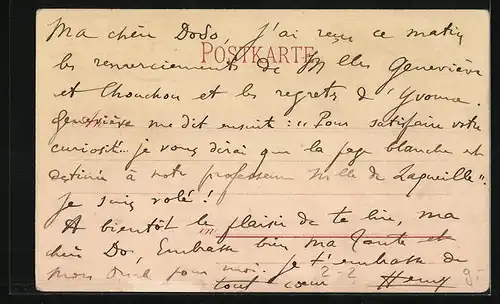 Ma chère Dodo, j'ai reçu ce matin
POSTKARTE
les remerciements de Mlles Geneviève
et Chouchou et les regrets d'Yvonne.
Geneviève me dit ensuite : "Pour satisfaire votre
curiosité.. je vous dirai que la page blanche est
destinée à notre professeur Mlle de Lagueille".
Je suis volé !
A bientôt le plaisir de te lire, ma
chère Do, Embrasse bien ma Tante et
mon Oncle pour moi. Je t'embrasse de
tout cœur Henry
2-2
9-